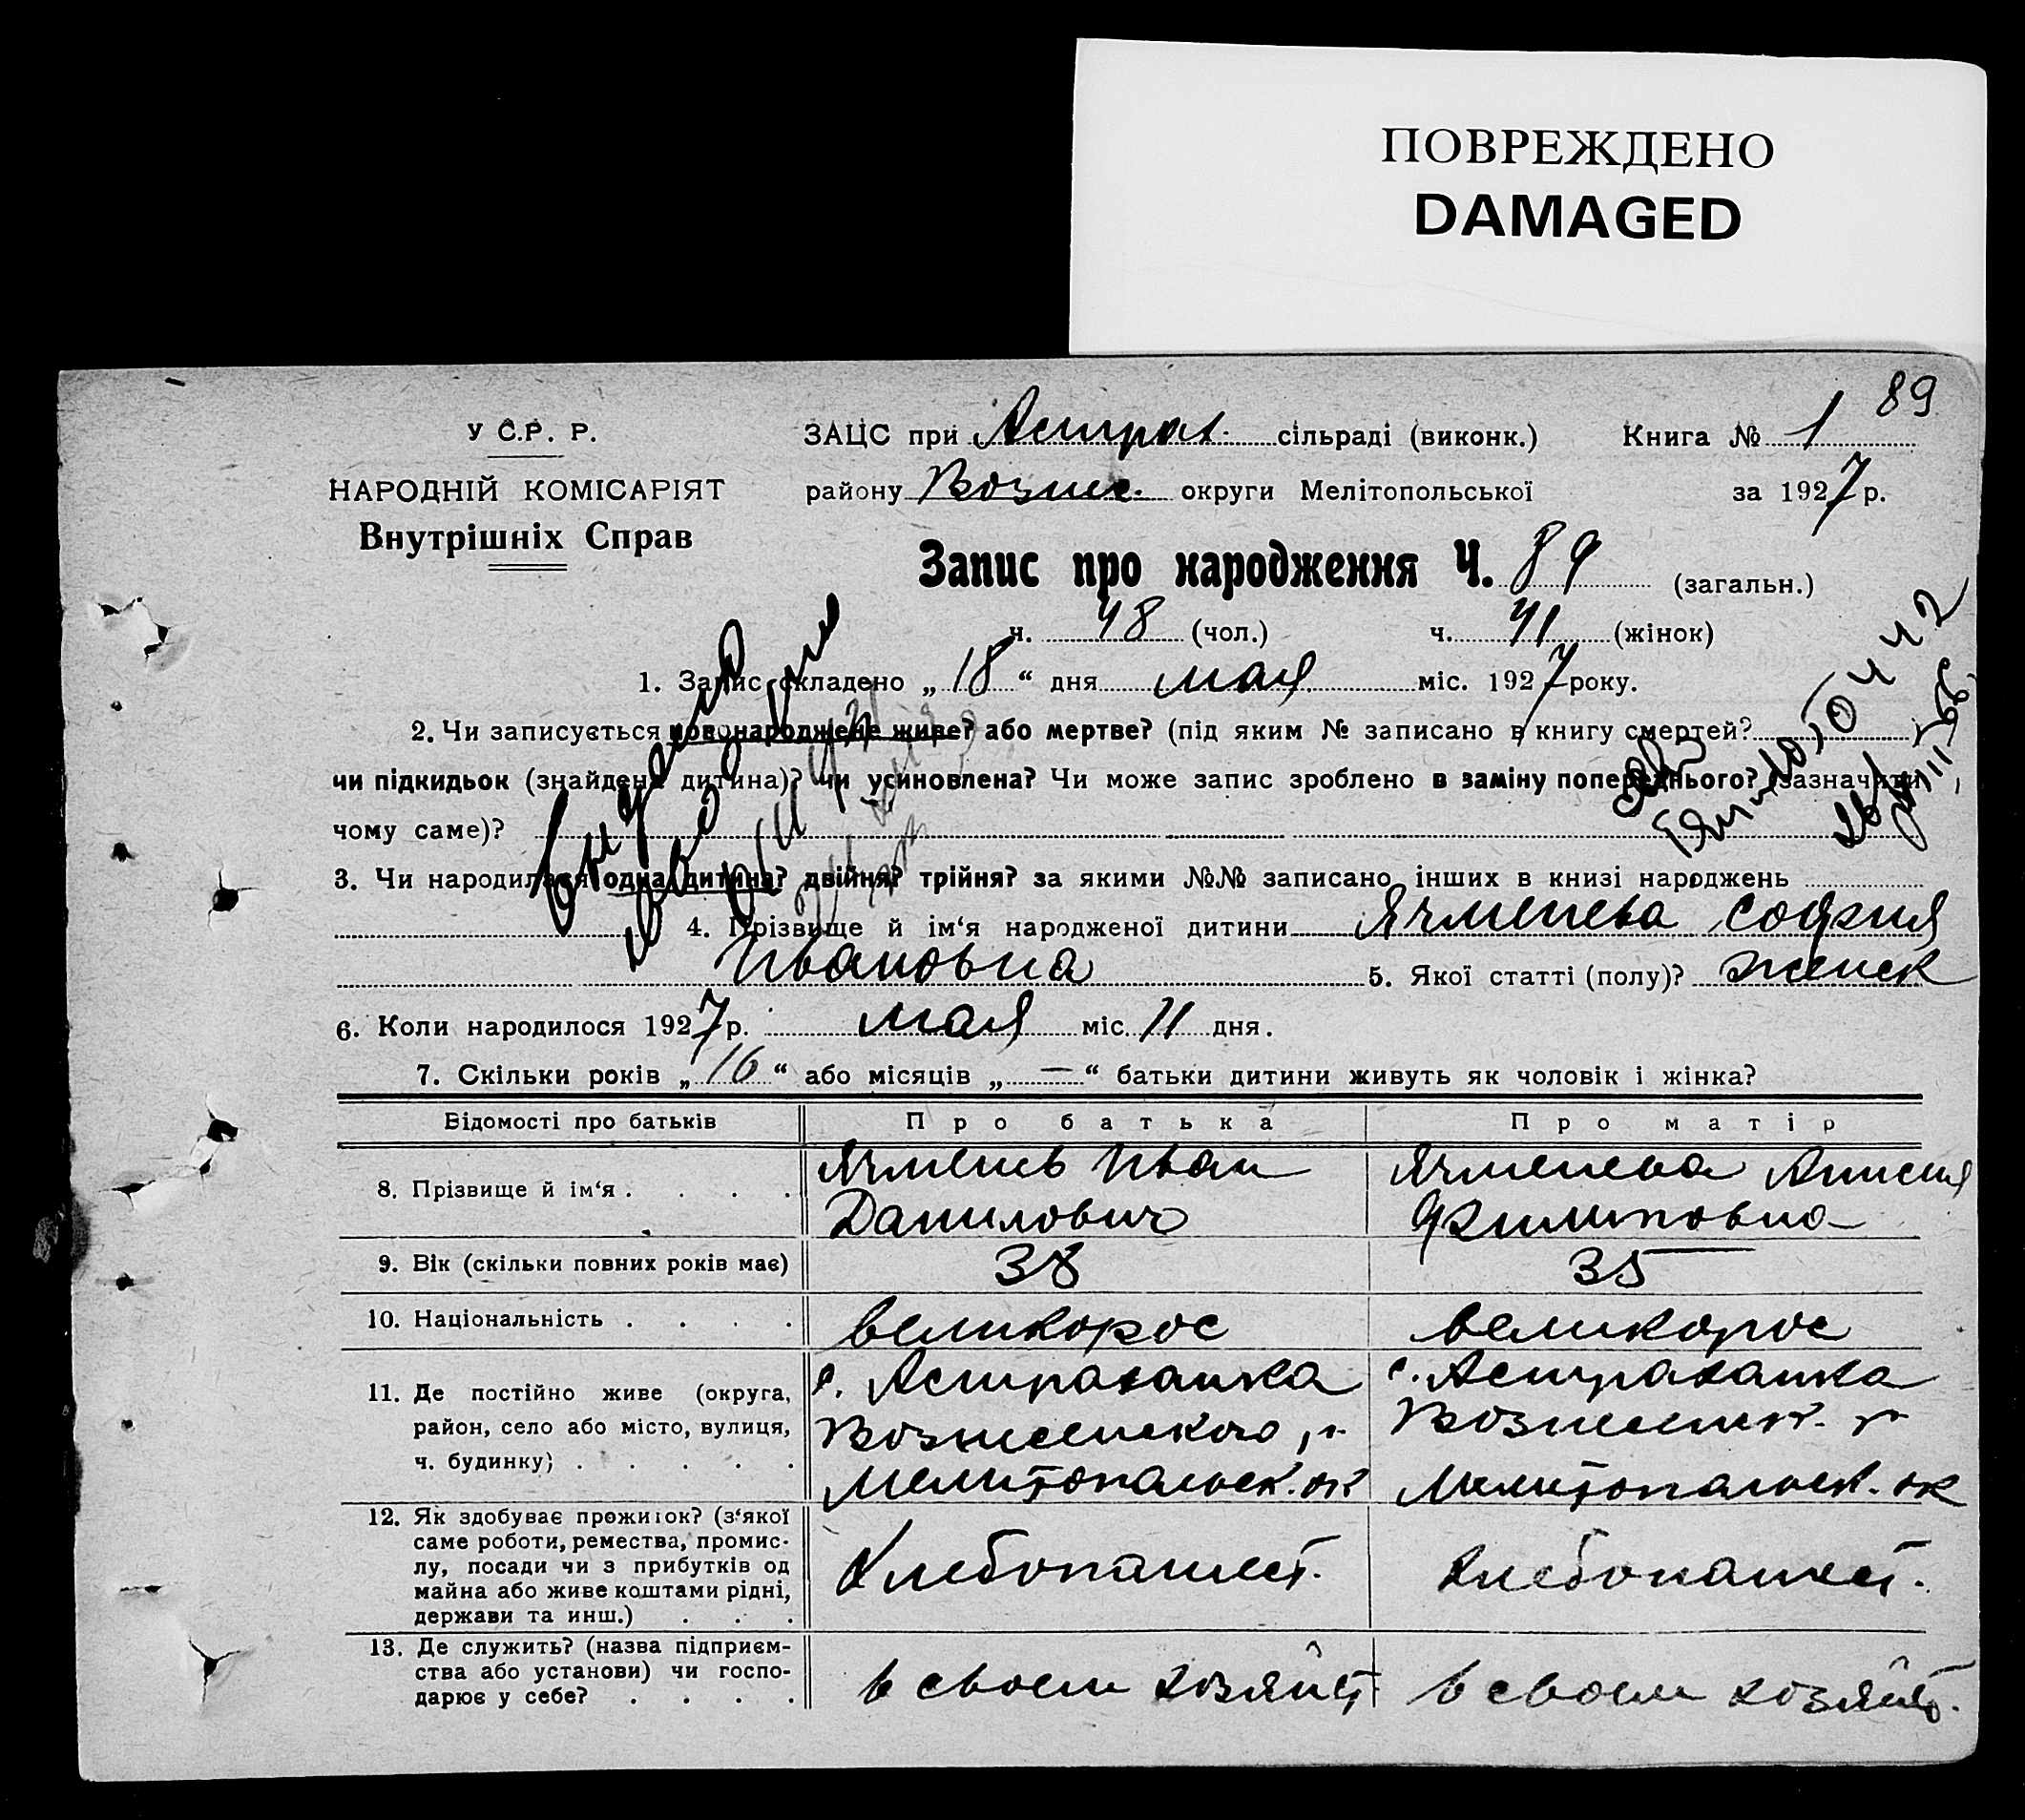 ПОВРЕЖДЕНО
DAMAGED
89
У С.Р. Р.
ЗАЦС при Астрах. сільраді (виконк.) Книга № 1
НАРОДНІЙ КОМІСАРІЯТ
району Вознес. округи Мелітопольської за 1927 р.
Внутрішніх Справ
Запис про народження Ч. 89 (загальн.)
ч. 48 (чол.) ч. 41 (жінок)
1. Запис складено „18“ дня мая міс. 1927 року.
2. Чи записується новонароджене живе? або мертве? (під яким № записано в книгу смертей?
чи підкидьок (знайдена дитина)? чи усиновлена? Чи може запис зроблено в заміну попереднього? (зазначити
чому саме)?
3. Чи народилася одна дитина? двійня? трійня? за якими №№ записано інших в книзі народжень
4. Прізвище й ім‘я народженої дитини Ячменева София
Ивановна 5. Якої статті (полу)? женск
6. Коли народилося 1927 р. мая міс. 11 дня.
7. Скільки років „16“ або місяців „—“ батьки дитини живуть як чоловік і жінка?
Відомості про батьків Про батька Про матір
8. Прізвище й ім‘я . . . . Ячменев Иван Ячменева Анисия
Данилович Филиповна
9. Вік (скільки повних років має) 38 35
10. Національність . . . . великорос великорос
11. Де постійно живе (округа, с. Астраханка с. Астраханка
район, село або місто, вулиця, Вознесенского р. Вознесенск. р
ч. будинку) . . . . . Мелитопольск. ок Мелитопольск. ок
12. Як здобуває прожиток? (з‘якої
саме роботи, ремества, промис-
лу, посади чи з прибутків од Хлебопашест. Хлебопашест.
майна або живе коштами рідні,
держави та инш.) . . .
13. Де служить? (назва підприєм-
ства або установи) чи госпо- в своем хозяйст в своем хозяйст.
дарює у себе? . . . .